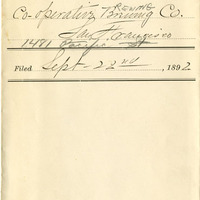 Co-operative Brewing Co.
San Francisco
1481 Pacific St
Filed Sept 22nd, 1892